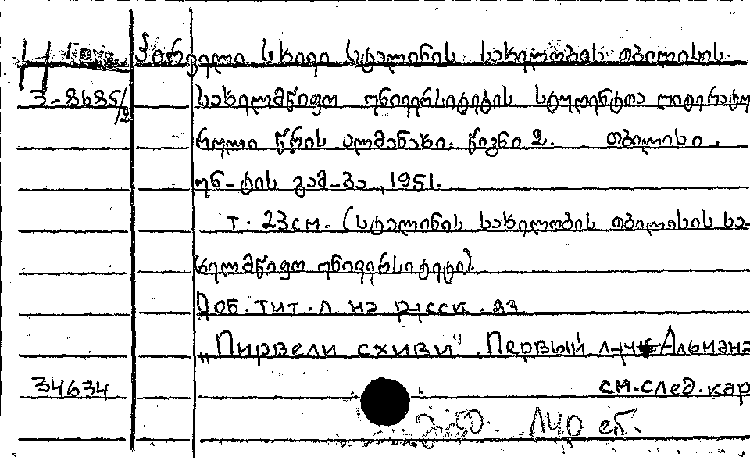 პირველი სხივი სტალინის სახელობის თბილისის
სახელმწიფო უნივერსიტეტის სტუდენტთა ლიტერატუ
რული წრის ალმანახი. წიგნი 2. თბილისი.
უნ-ტის გამ-ბა, 1951.
т. 23см. (სტალინის სახელობის თბილისის სა-
ხელმწიფო უნივერსიტეტი).
Доп. тит. л на русск. яз
„Пирвели схиви". Первый луч Альмана
34634 см. след. кар